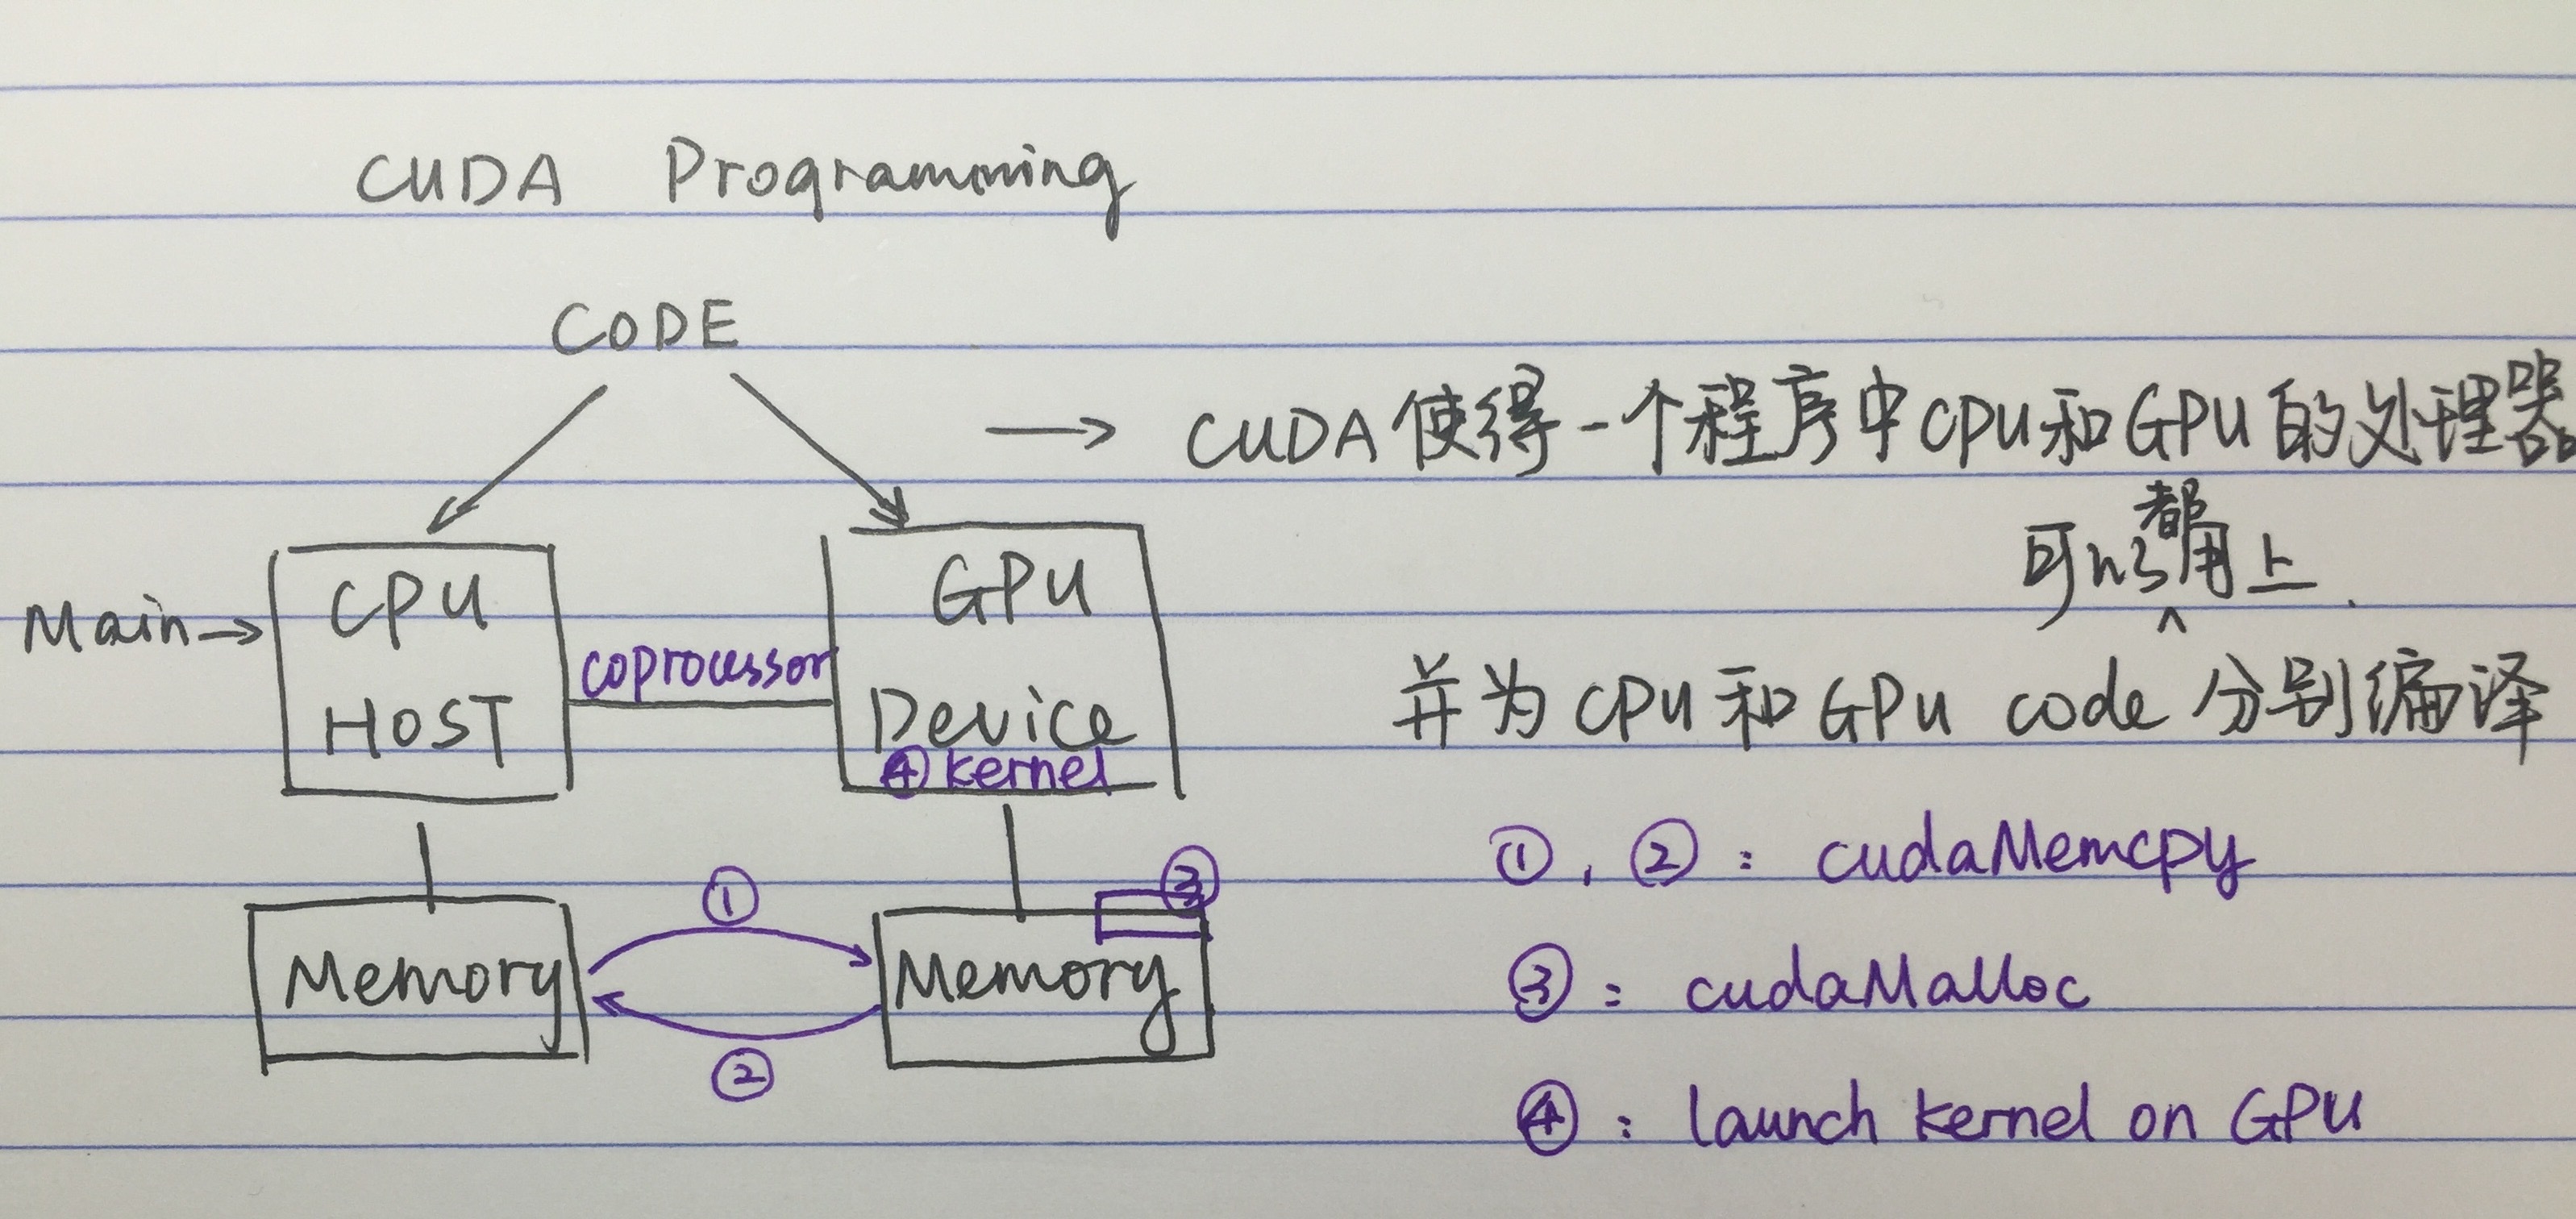 CUDA Programming
CODE
→ CUDA使得一个程序中CPU和GPU的处理器
可以都用上.
Main→
CPU
HOST
coprocessor
GPU
Device
④ kernel
并为CPU和GPU code 分别编译
①
②
③
Memory
Memory
①, ②: cudaMemcpy
③: cudaMalloc
④: launch kernel on GPU